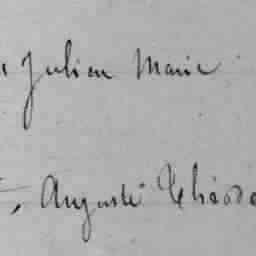 Julien Marie
, Auguste Théodo